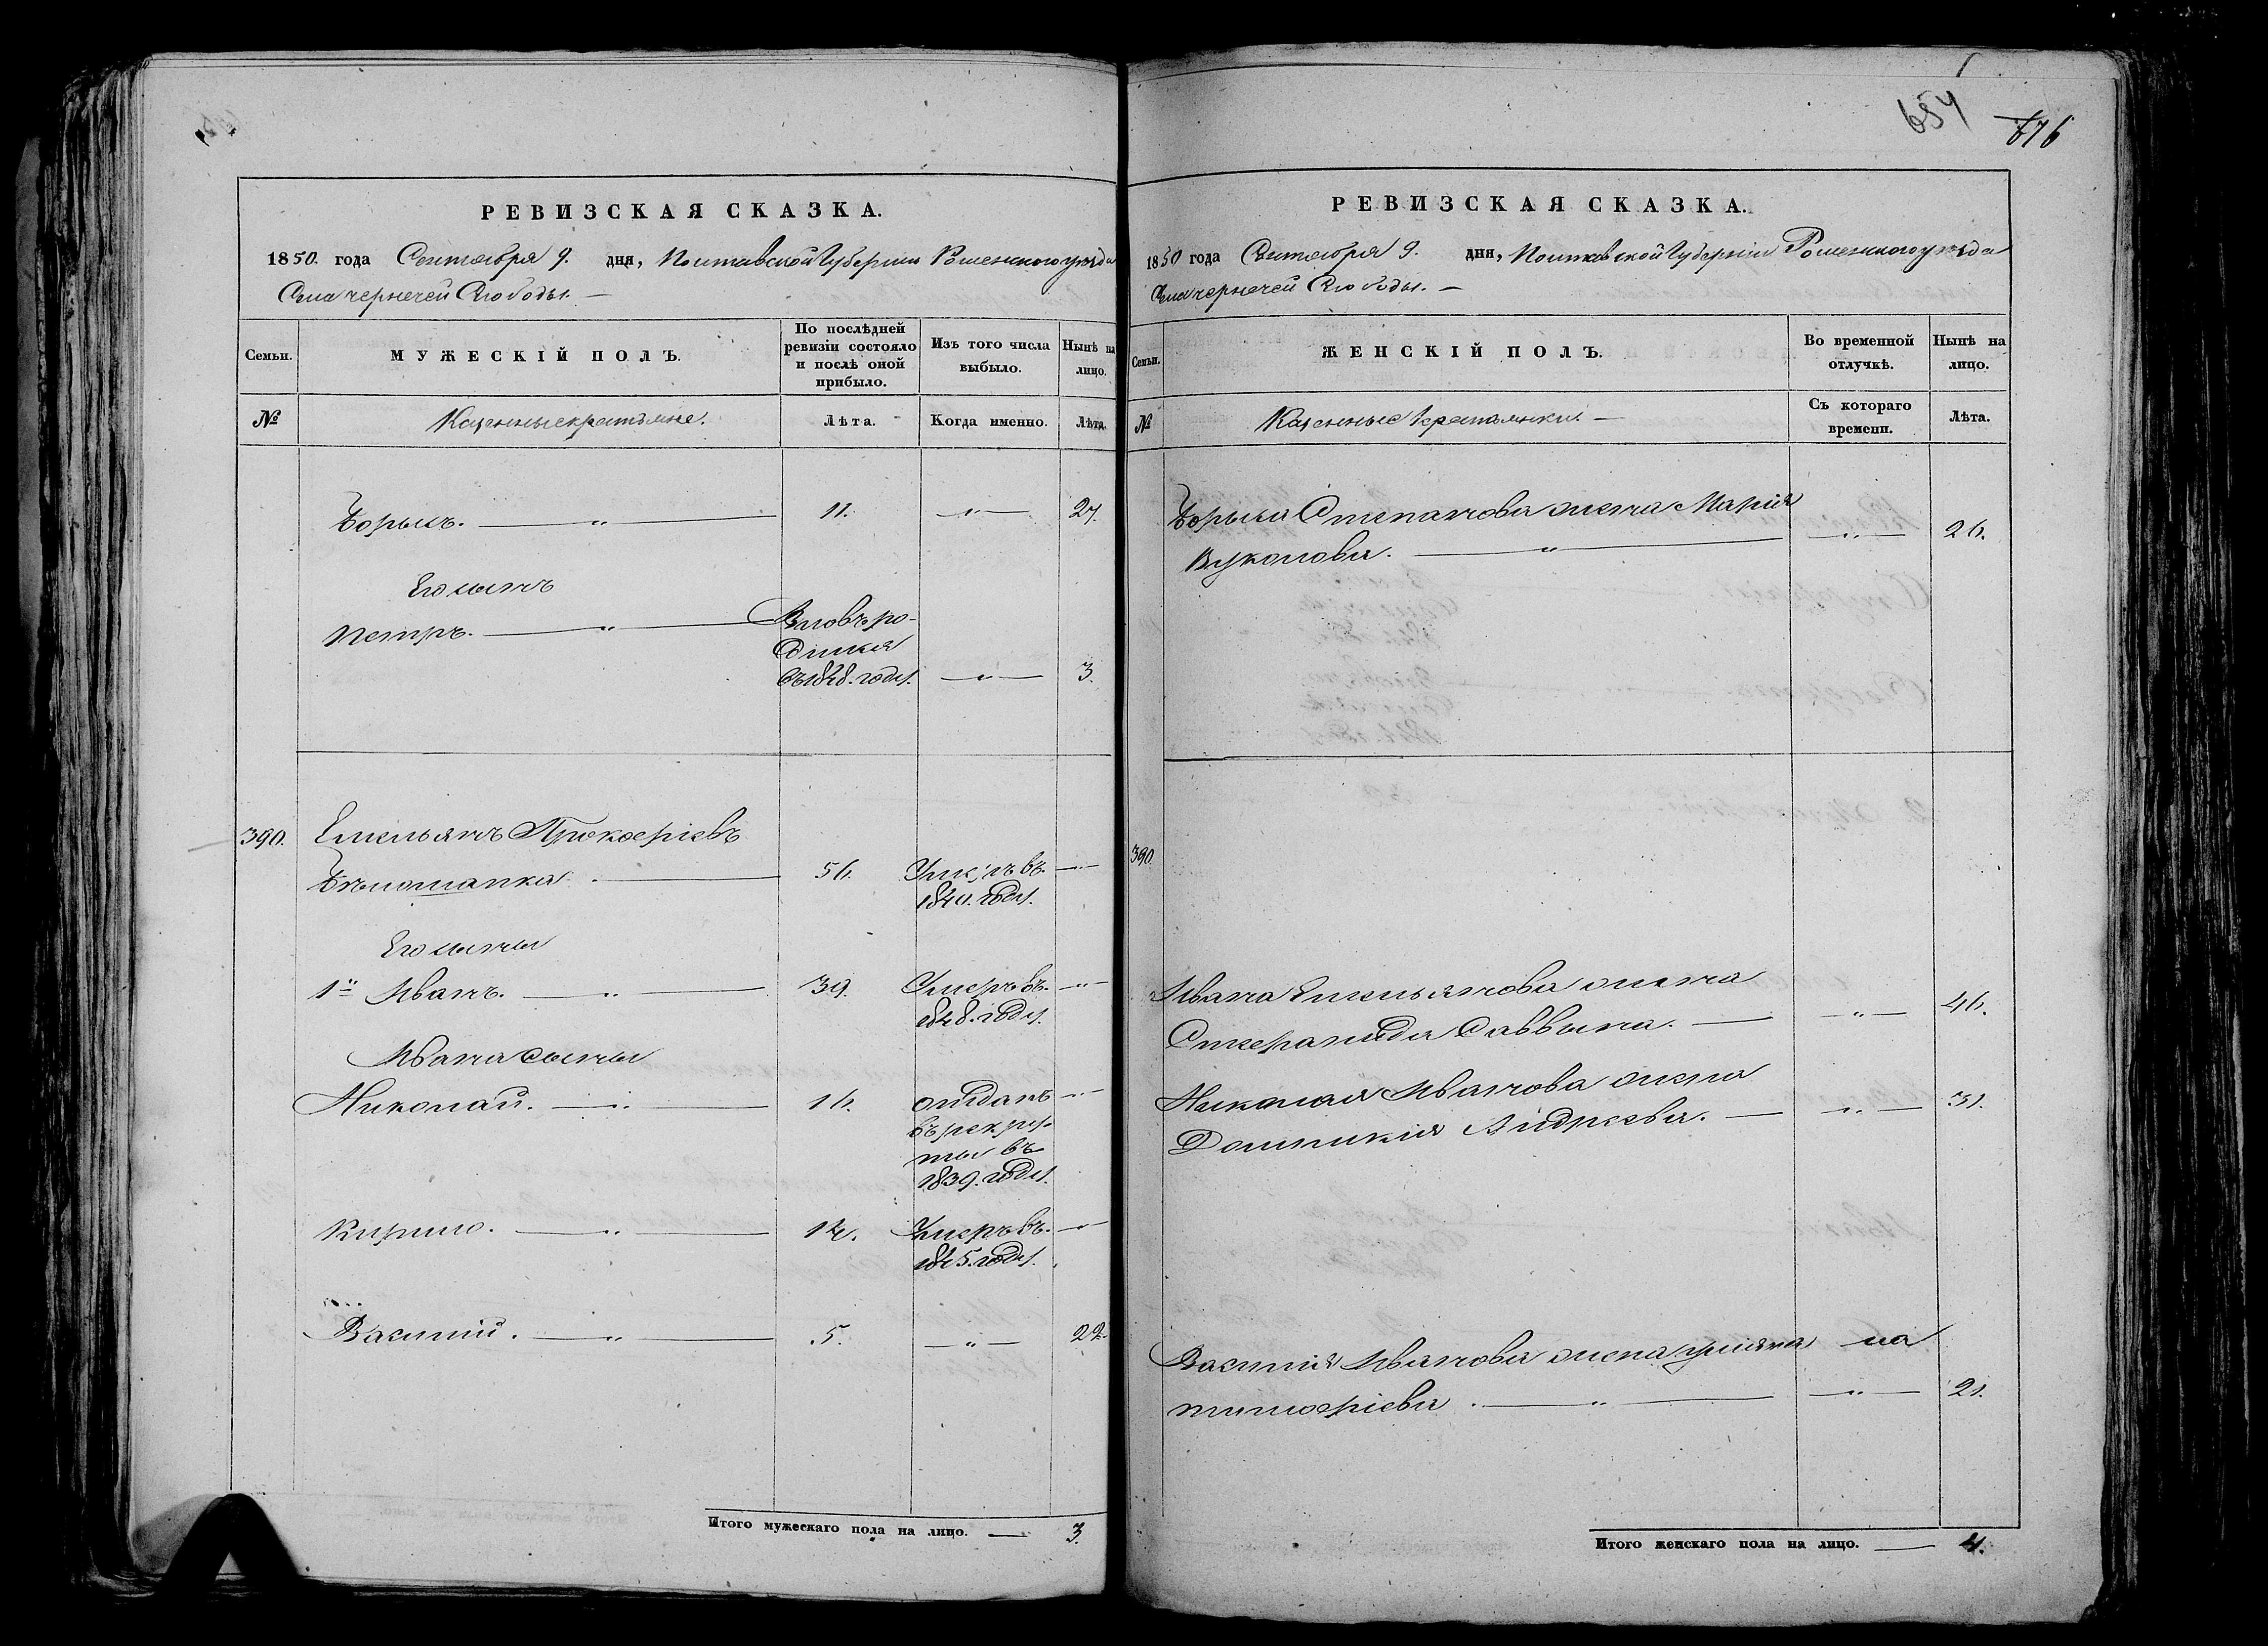 654
676
РЕВИЗСКАЯ СКАЗКА.
1850. года Сентября 9. дня, Полтавской Губернии Роменского уезда
Села чернечей Слободы. —
Семьи.
МУЖЕСКІЙ ПОЛЪ.
По послѣдней ревизіи состояло и послѣ оной прибыло.
Изъ того числа выбыло.
Нынѣ на лицо.
№
Казенные крестьяне.
Лѣта.
Когда именно.
Лѣта.
Борысъ. — 11. — 27.
Его сынъ
Петръ. — Вновъ ро-
дился
въ 1848. году. — 3.
390. Емельянъ Прокофіевъ
Бѣлошапка — 56. Умеръ въ —
1840. году.
Его сыны
1й Иванъ. — 39. Умеръ въ —
1848. году.
Ивана сыны
Николай. — 16. отданъ —
въ рекру-
ты въ
1839. году.
Кирило. — 12. Умеръ въ —
1845. году.
Василій. — 5. — 22.
Итого мужескаго пола на лицо. — 3.
РЕВИЗСКАЯ СКАЗКА.
1850 года Сентября 9. дня, Полтавской Губернии Роменского уезда
Села чернечей Слободы. —
Семьи.
ЖЕНСКІЙ ПОЛЪ.
Во временной отлучкѣ.
Нынѣ на лицо.
№
Казенные крестьянки. —
Съ котораго времени.
Лѣта.
Борыса Степанова жена Марія
Вуколова. — 26.
390.
Ивана Емельянова жена
Гликерія Саввина. — 46.
Николая Иванова жена
Домникія Андреева. — 31.
Василія Иванова жена Уліяна
тимофіева. — 21.
Итого женскаго пола на лицо. — 4.